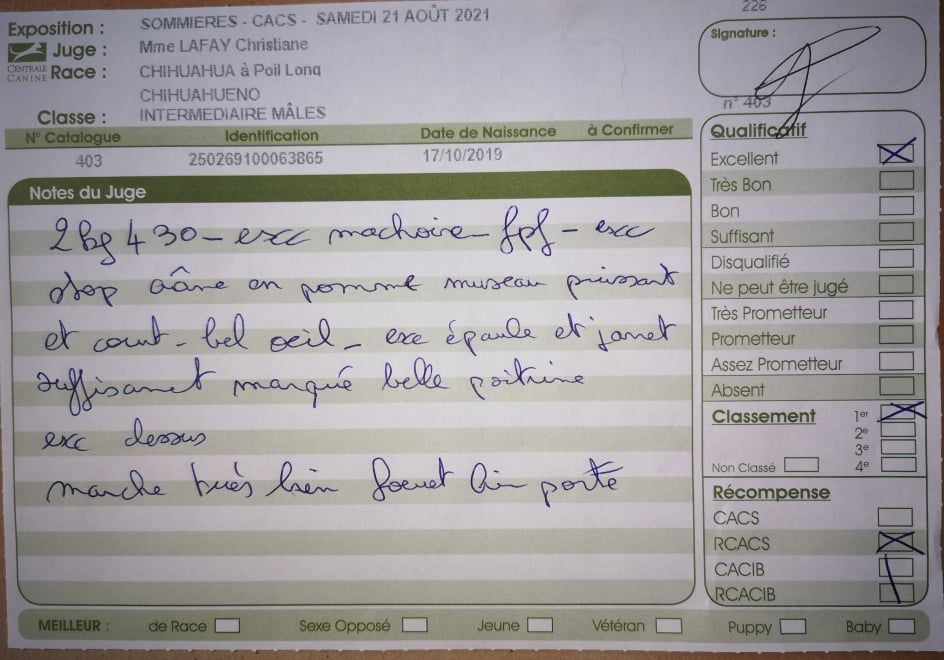 226
Exposition : SOMMIERES - CACS - SAMEDI 21 AOÛT 2021
Juge : Mme LAFAY Christiane
CENTRALE CANINE
Race : CHIHUAHUA à Poil Long
CHIHUAHUENO
Classe : INTERMEDIAIRE MÂLES
Signature :
n° 403
N° Catalogue Identification Date de Naissance à Confirmer
403 250269100063865 17/10/2019
Notes du Juge
2 kg 430 - exc machoire - fpf - exc
stop crâne en pomme museau puissant
et court - bel oeil - exc épaule et jarret
suffisamet marqué belle poitrine
exc dessus
marche très bien fouet bin porté
Qualificatif
Excellent
Très Bon
Bon
Suffisant
Disqualifié
Ne peut être jugé
Très Prometteur
Prometteur
Assez Prometteur
Absent
Classement 1er
2e
3e
Non Classé 4e
Récompense
CACS
RCACS
CACIB
RCACIB
MEILLEUR : de Race Sexe Opposé Jeune Vétéran Puppy Baby